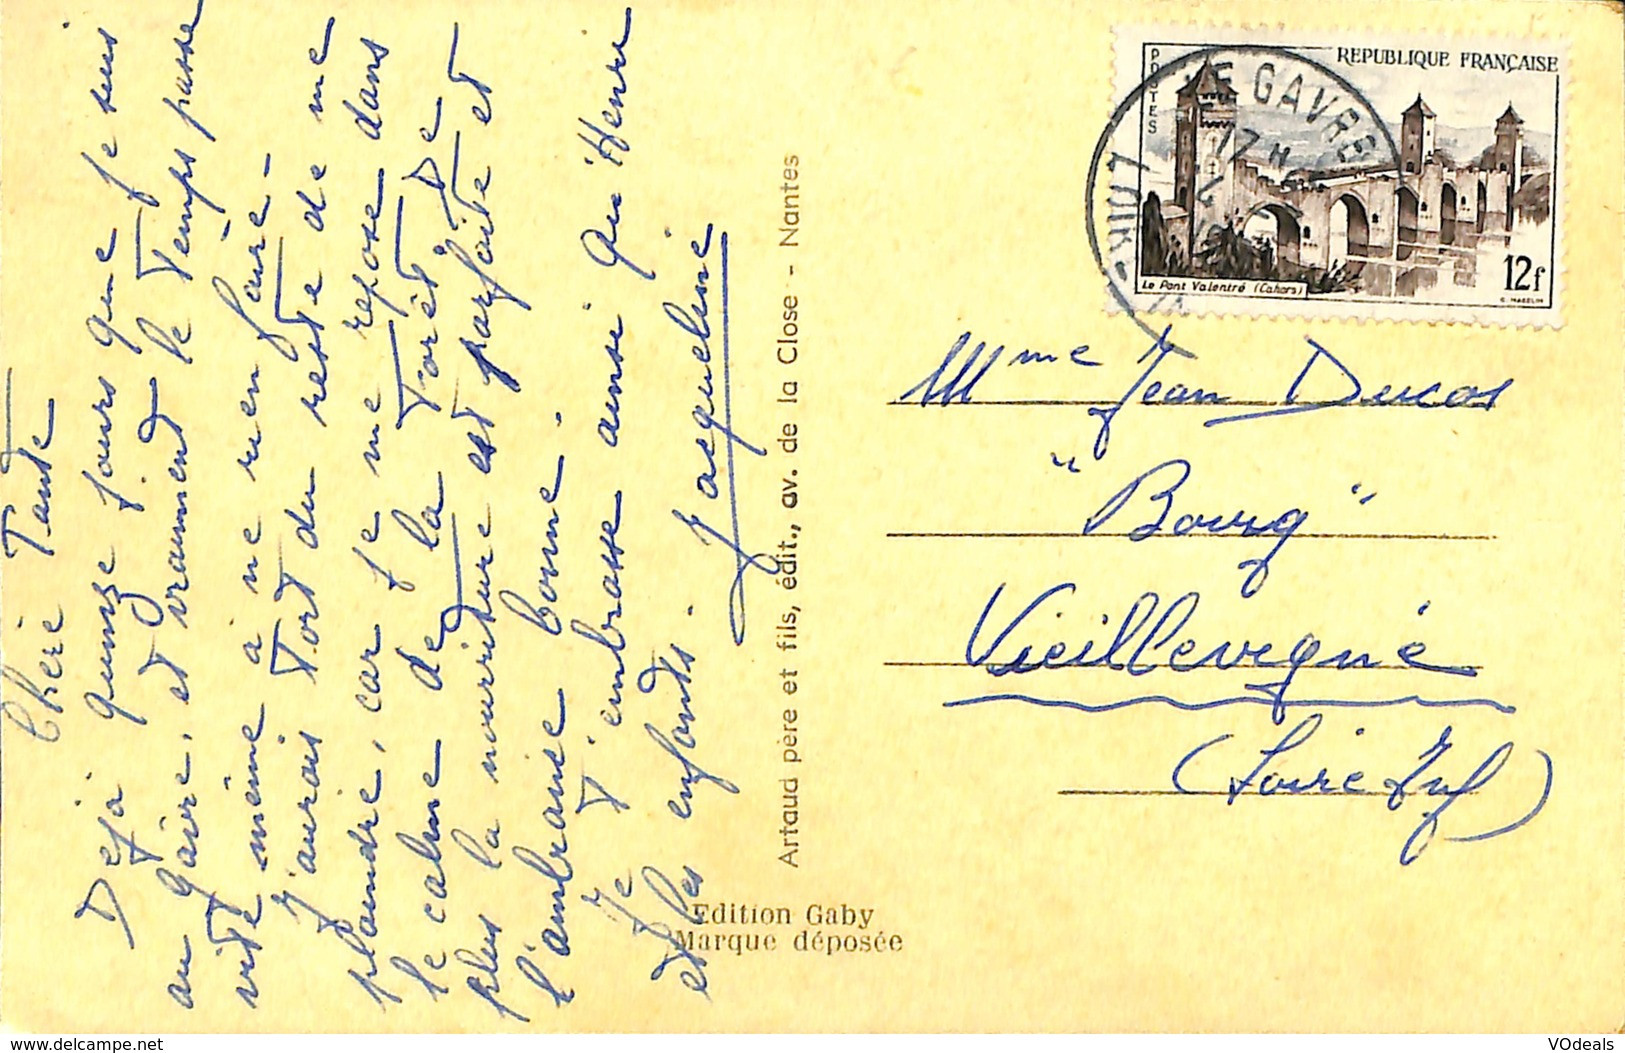 Chère Tante
Déjà quinze jours que je suis
au Gâvre, et vraiment le Temps passe
vite même à ne rien faire -
J'aurais Tort du reste de me
plaindre, car je me repose dans
le calme de la Forêt. De
plus la nourriture est parfaite et
l'ambiance bonne.
Je T'embrasse ainsi que Henri
et les enfants.
Jacqueline
Artaud père et fils, édit., av. de la Close - Nantes
Edition Gaby
Marque déposée
POSTES
REPUBLIQUE FRANÇAISE
Le Pont Valentré (Cahors)
12f
LE GAVRE
17 H
LOIRE
Mme Jean Ducos
"Bourg"
Vieillevigne
(Loire Inf)
VOdeals
www.delcampe.net